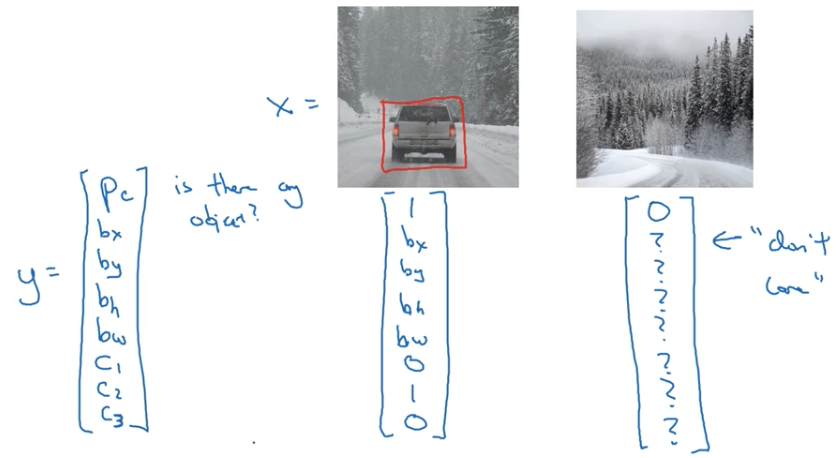 x =
y =
Pc
bx
by
bh
bw
C1
C2
C3
is there any
object?
1
bx
by
bh
bw
0
1
0
0
?
?
?
?
?
?
?
← "don't
care"